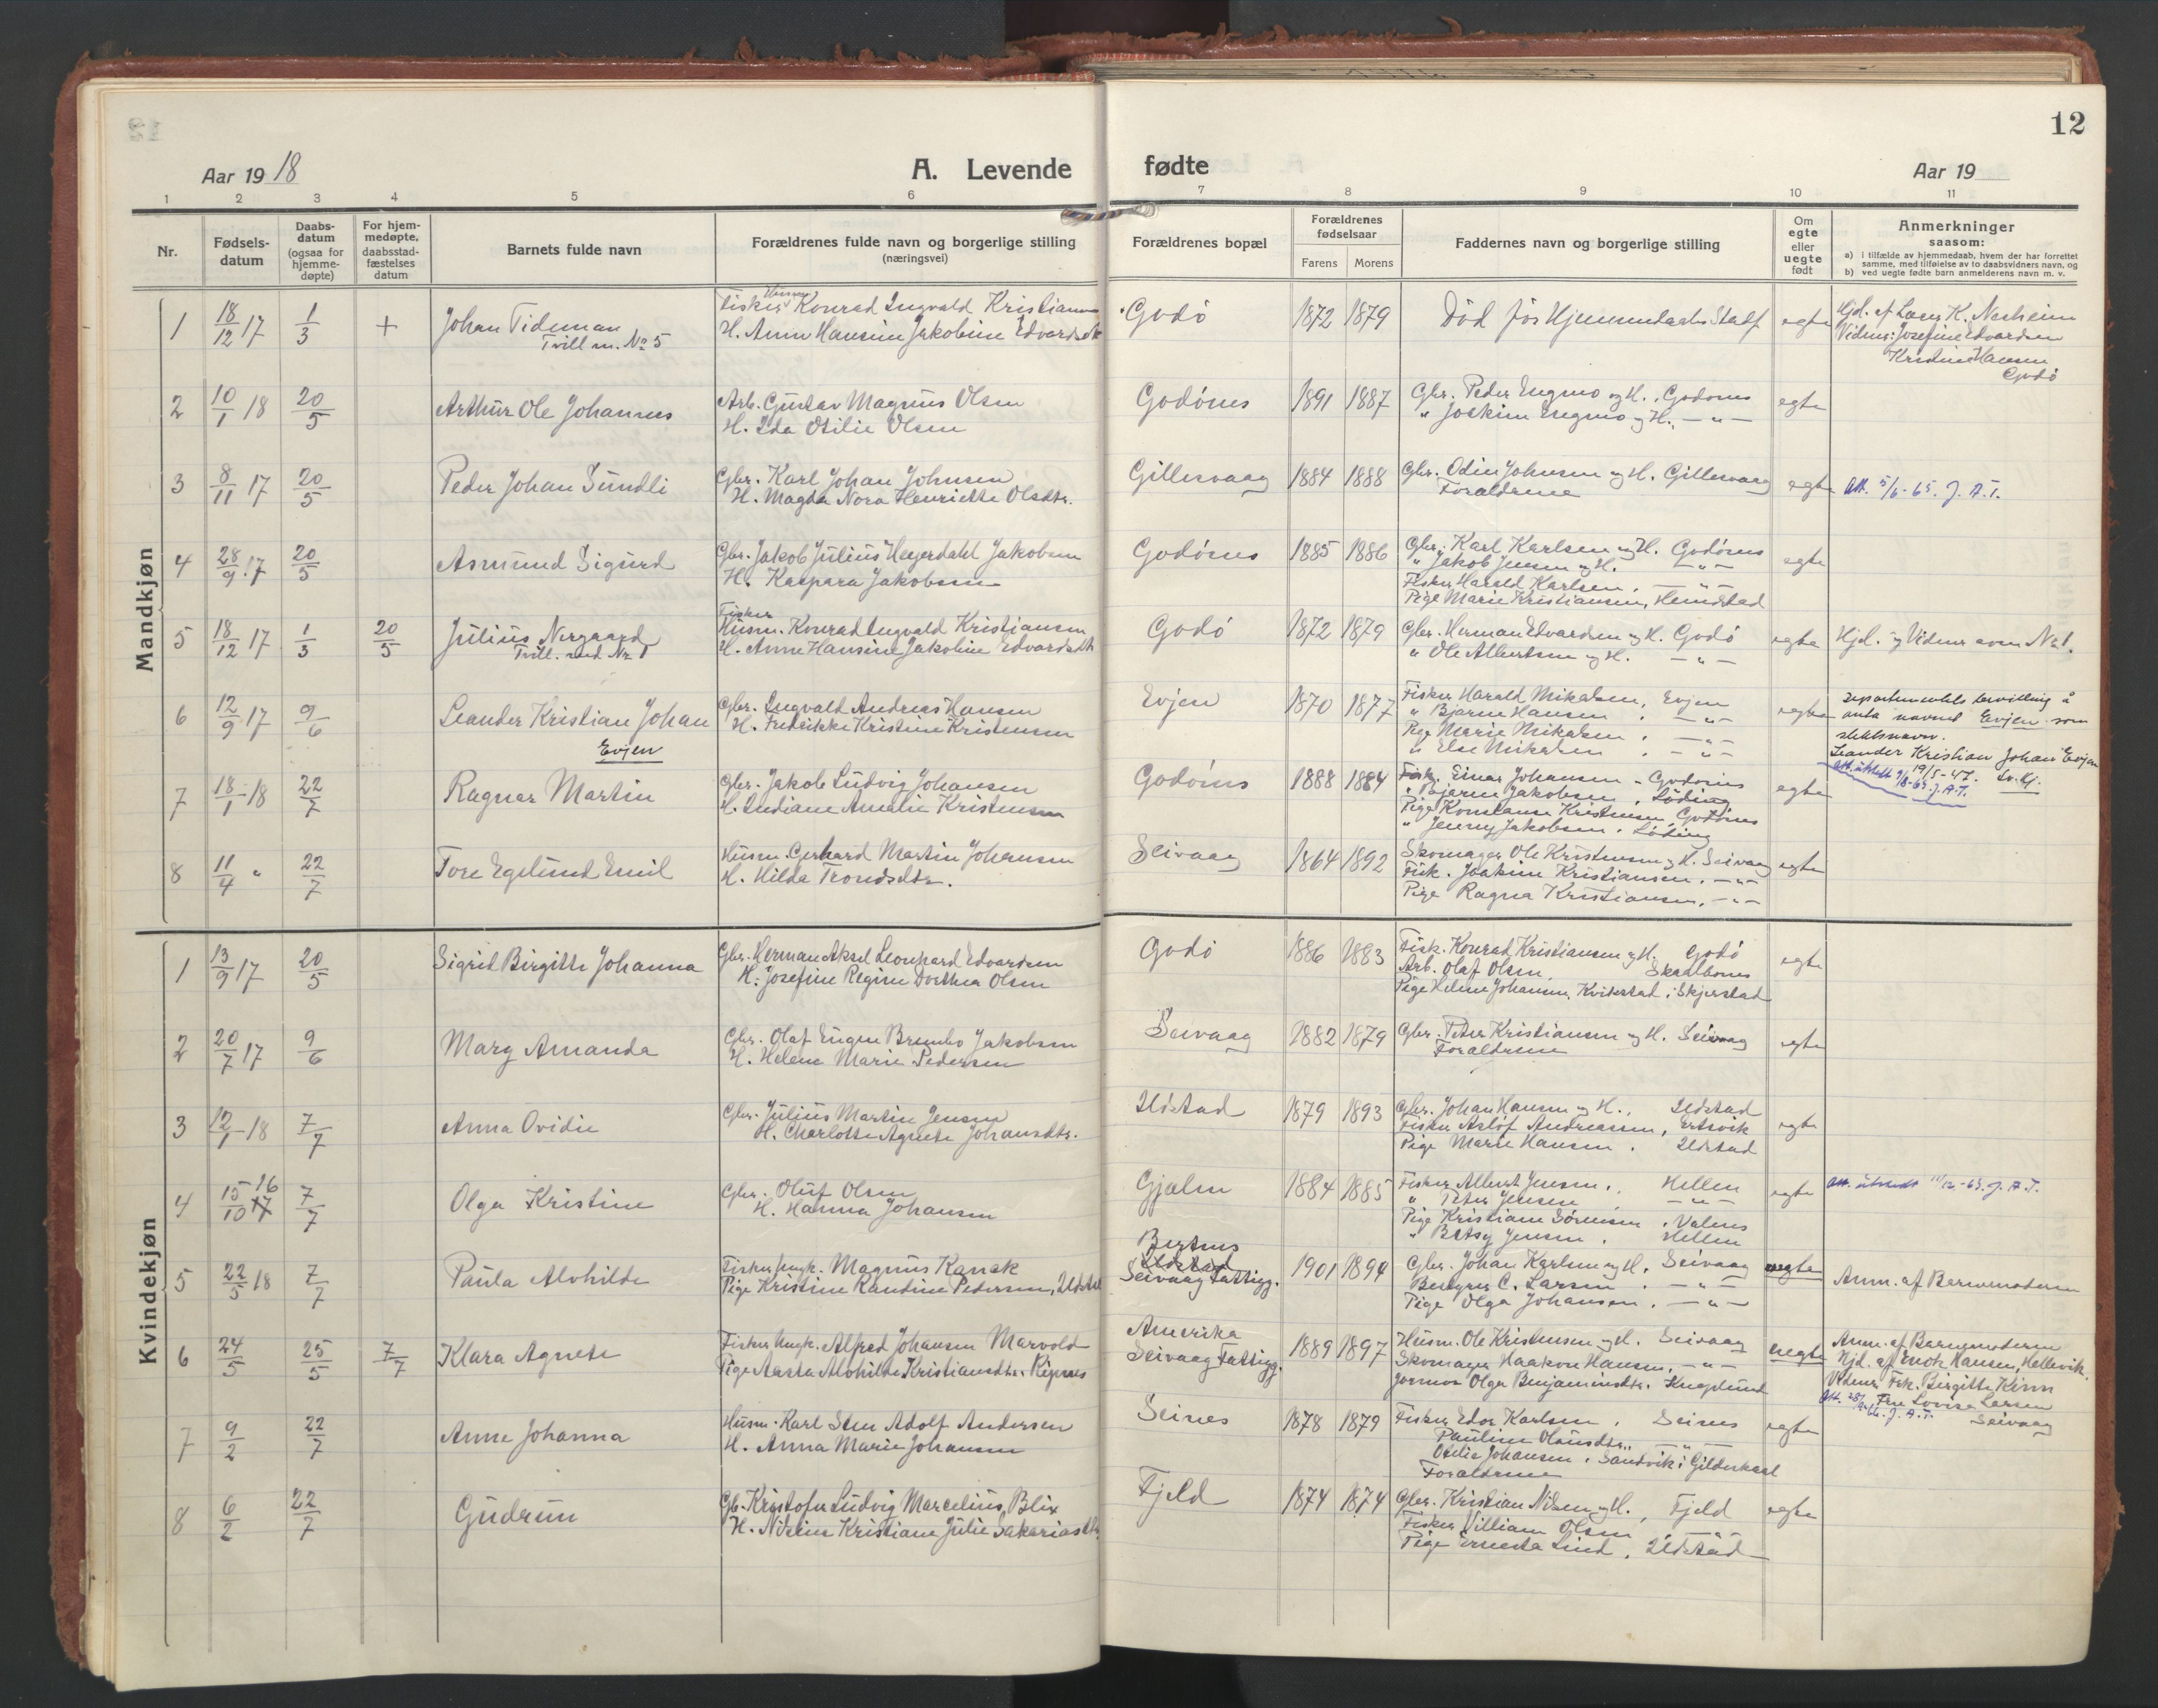 12
Aar 1918
A. Levende fødte
Aar 19
1 2 3 4 5 6 7 8 9 10 11
Nr.
Fødsels-datum
Daabs-datum (ogsaa for hjemme-døpte)
For hjem-medøpte, daabsstad-fæstelses datum
Barnets fulde navn
Forældrenes fulde navn og borgerlige stilling (næringsvei)
Forældrenes bopæl
Forældrenes fødselsaar
Farens Morens
Faddernes navn og borgerlige stilling
Om egte eller uegte født
Anmerkninger saasom:
a) i tilfælde av hjemmedaab, hvem der har forrettet samme, med tilføielse av to daabsvidners navn, og
b) ved uegte fødte barn anmelderens navn m. v.
Mandkjøn
1 18/12 17 1/3 + Johan Tideman
Tvill m. No 5
Fisker Husm. Konrad Ingvald Kristiansen
H. Anne Hansine Jakobine Edvardsdtr
Godö 1872 1879 Död før Hjemmedaabs Stadf egte
Hjd. af K. Nesheim
Vidner: Josefine Edvardsen
Kristine Hansen
Godö
2 10/1 18 20/5 Arthur Ole Johannes
Arb. Gustav Magnus Olsen
H. Ida Otilie Olsen
Godönes 1891 1887
Gbr. Peder Engmo og H., Godönes
" Joakim Engmo og H. — " —
egte
3 8/11 17 20/5 Peder Johan Sundli
Gbr. Karl Johan Johnsen
H. Magda Nora Henriette Olsdtr.
Gillesvaag 1884 1888
Gbr. Odin Johnsen og H. Gillesvaag
Forældrene
egte Att. 5/6-65. J.A.T.
4 28/9 17 20/5 Asmund Sigurd
Gbr. Jakob Julius Heyerdahl Jakobsen
H. Kaspara Jakobsen
Godönes 1885 1886
Gbr. Karl Karlsen og H. Godönes
" Jakob Jensen og H. — " —
Fisker Harald Karlsen, — " —
Pige Marie Kristiansen, Hemstad
egte
5 18/12 17 1/3 20/5 Julius Nergaard
Tvill. med Nr 1
Fisker
Husm. Konrad Ingvald Kristiansen
H. Anne Hansine Jakobine Edvardsdtr
Godö 1872 1879
Gbr. Herman Edvardsen og H. Godö
" Ole Albertsen og H. — " —
egte Hjd. og Vidner som Nr 1.
6 12/9 17 9/6 Leander Kristian Johan
Evjen
Gbr. Ingvald Andreas Hansen
H. Fredrikke Kristine Kristensen
Evjen 1870 1877
Fisker Harald Mikalsen, Evjen
" Bjarne Hansen, — " —
Pige Marie Mikalsen, — " —
" Else Mikalsen, — " —
egte
Departementets bevilling å
anta navnet Evjen som
slektsnavn.
Leander Kristian Johan Evjen
19/5-47.
7 18/1 18 22/7 Ragnar Martin
Gbr. Jakob Ludvig Johansen
H. Indiane Amalie Kristensen
Godönes 1888 1884
Fisk. Einar Johansen - Godönes
" Bjarne Jakobsen, Löding
Pige Konstanse Kristensen, Godönes
" Jenny Jakobsen, Löding
egte
8 11/4 " 22/7 Tore Egelund Emil
Husm. Gerhard Martin Johansen
H. Hilda Trondsdtr.
Seivaag 1864 1892
Skomager Ole Kristensen og H. Seivaag
Fisk. Joakim Kristiansen, — " —
Pige Ragna Kristiansen, — " —
egte
Kvindekjøn
1 13/9 17 20/5 Sigrid Birgitte Johanna
Gbr. Herman Aksel Leonhard Edvardsen
H. Josefine Regine Dorthea Olsen
Godö 1886 1883
Fisk. Konrad Kristiansen og H. Godö
Arb. Olaf Olsen, Skaalbones
Pige Helene Johansen, Kvikstad i Skjerstad
egte
2 20/7 17 9/6 Marg Amanda
Gbr. Olaf Eugen Brembo Jakobsen
H. Helene Marie Pedersen
Seivaag 1882 1879
Gbr. Peter Kristiansen og H. Seivaag
Forældrene
egte
3 12/1 18 7/7 Anna Ovidie
Gbr. Julius Martin Jensen
H. Charlotte Agnete Johansdtr.
Ildstad 1879 1893
Gbr. Johan Hansen og H., Ildstad
Fisker Aslöf Andreassen, Ertsvik
Pige Marie Hansen, Ildstad
egte
4 15/10 16 7/7 Olga Kristine
Gbr. Oluf Olsen
H. Hanna Johansen
Gjælen 1884 1885
Fisker Albert Jensen, Hellen
" Peter Jensen, — " —
Pige Kristiane Sörensen, Valnes
" Betsy Jensen, Hellen
egte Att. utsendt 11/12-63. J.A.T.
5 22/5 18 7/7 Paula Alvhilde
Fisker Ungk. Magnus Kanck
Pige Kristine Randine Pedersen, Ildstad
Ildstad
Seivaag Fattigg. 1901 1894
Gbr. Johan Karlsen og H. Seivaag
C. Larsen, — " —
Pige Olga Johansen, — " —
uegte Anm. af Barnemoderen
6 24/5 25/5 7/7 Klara Agnete
Fisker Ungk. Alfred Johansen Marvold
Pige Aasta Alvhilde Kristiansdtr. Ripnes
Amerika
Seivaag Fattigg. 1889 1897
Husm. Ole Kristensen og H. Seivaag
Skomager Haakon Hansen, — " —
Jormor Olga Benjaminsdtr.
uegte
Anm. af Barnemoderen
Hjd. af Enok Hansen, Hellevik.
Vidner Frk. Birgitte Kinn
Fru Lovise Larsen
Seivaag
7 9/2 22/7 Anne Johanna
Husm. Karl Sten Adolf Andersen
H. Anna Marie Johansen
Seines 1878 1879
Fisker Edor Karlsen, Seines
Pauline Olausdtr., — " —
Otilie Johansen, Sandvik i Gilderskaal
Forældrene
egte
8 6/2 22/7 Gudrun
Gb. Kristofer Ludvig Marcelius Blix
H. Nikoline Kristiane Julie Sakariasdtr.
Fjeld 1874 1874
Gbr. Kristian Nilsen og H., Fjeld
Fisker Villiam Olsen, — " —
Pige Ernesta Lind, Ildstad
egte